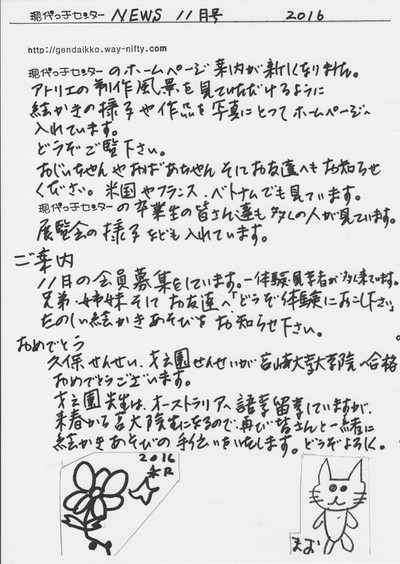 現代っ子センター NEWS 11月号 2016
http://gendaikko.way-nifty.com
現代っ子センターのホームページ案内が新しくなりました。
アトリエの制作風景を見ていただけるように
絵かきの様子や作品を写真にとってホームページへ
入れています。
どうぞご覧下さい。
おじいちゃんやおばあちゃんそしてお友達へもお知らせ
ください。米国やフランス、ベトナムでも見ています。
現代っ子センターの卒業生の皆さん達も多くの人が見ています。
展覧会の様子なども入れています。
ご案内
11月の会員募集をしています。体験・見学者が多く来ています。
兄弟・姉妹そしてお友達へ「どうぞ体験におこし下さい」
たのしい絵かきあそびをお知らせ下さい。
おめでとう
久保せんせい、園せんせいが大学大学院へ合格
おめでとうございます。
園先生は、オーストラリアへ語学留学していますが、
来春から大院生になるので、再び皆さんと一緒に
絵かきあそびの手伝いをいたします。どうぞよろしく。
2016
まお